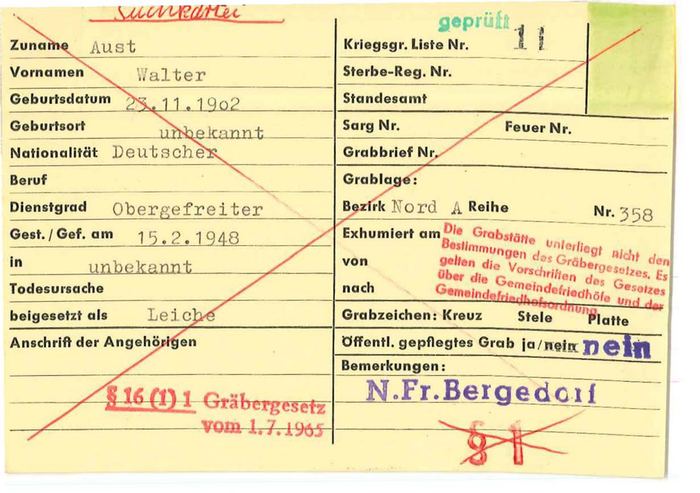 Suchkartei
geprüft
Zuname Aust
Vornamen Walter
Geburtsdatum 23.11.19o2
Geburtsort unbekannt
Nationalität Deutscher
Beruf
Dienstgrad Obergefreiter
Gest./Gef. am 15.2.1948
in unbekannt
Todesursache
beigesetzt als Leiche
Anschrift der Angehörigen
§ 16 (1) 1 Gräbergesetz
vom 1.7.1965
Kriegsgr. Liste Nr. 11
Sterbe-Reg. Nr.
Standesamt
Sarg Nr. Feuer Nr.
Grabbrief Nr.
Grablage:
Bezirk Nord A Reihe Nr. 358
Exhumiert am
von
nach
Die Grabstätte unterliegt nicht den
Bestimmungen des Gräbergesetzes. Es
gelten die Vorschriften des Gesetzes
über die Gemeindefriedhöfe und der
Gemeindefriedhofsordnung.
Grabzeichen: Kreuz Stele Platte
Öffentl. gepflegtes Grab ja/nein nein
Bemerkungen:
N.Fr.Bergedorf
§ 1